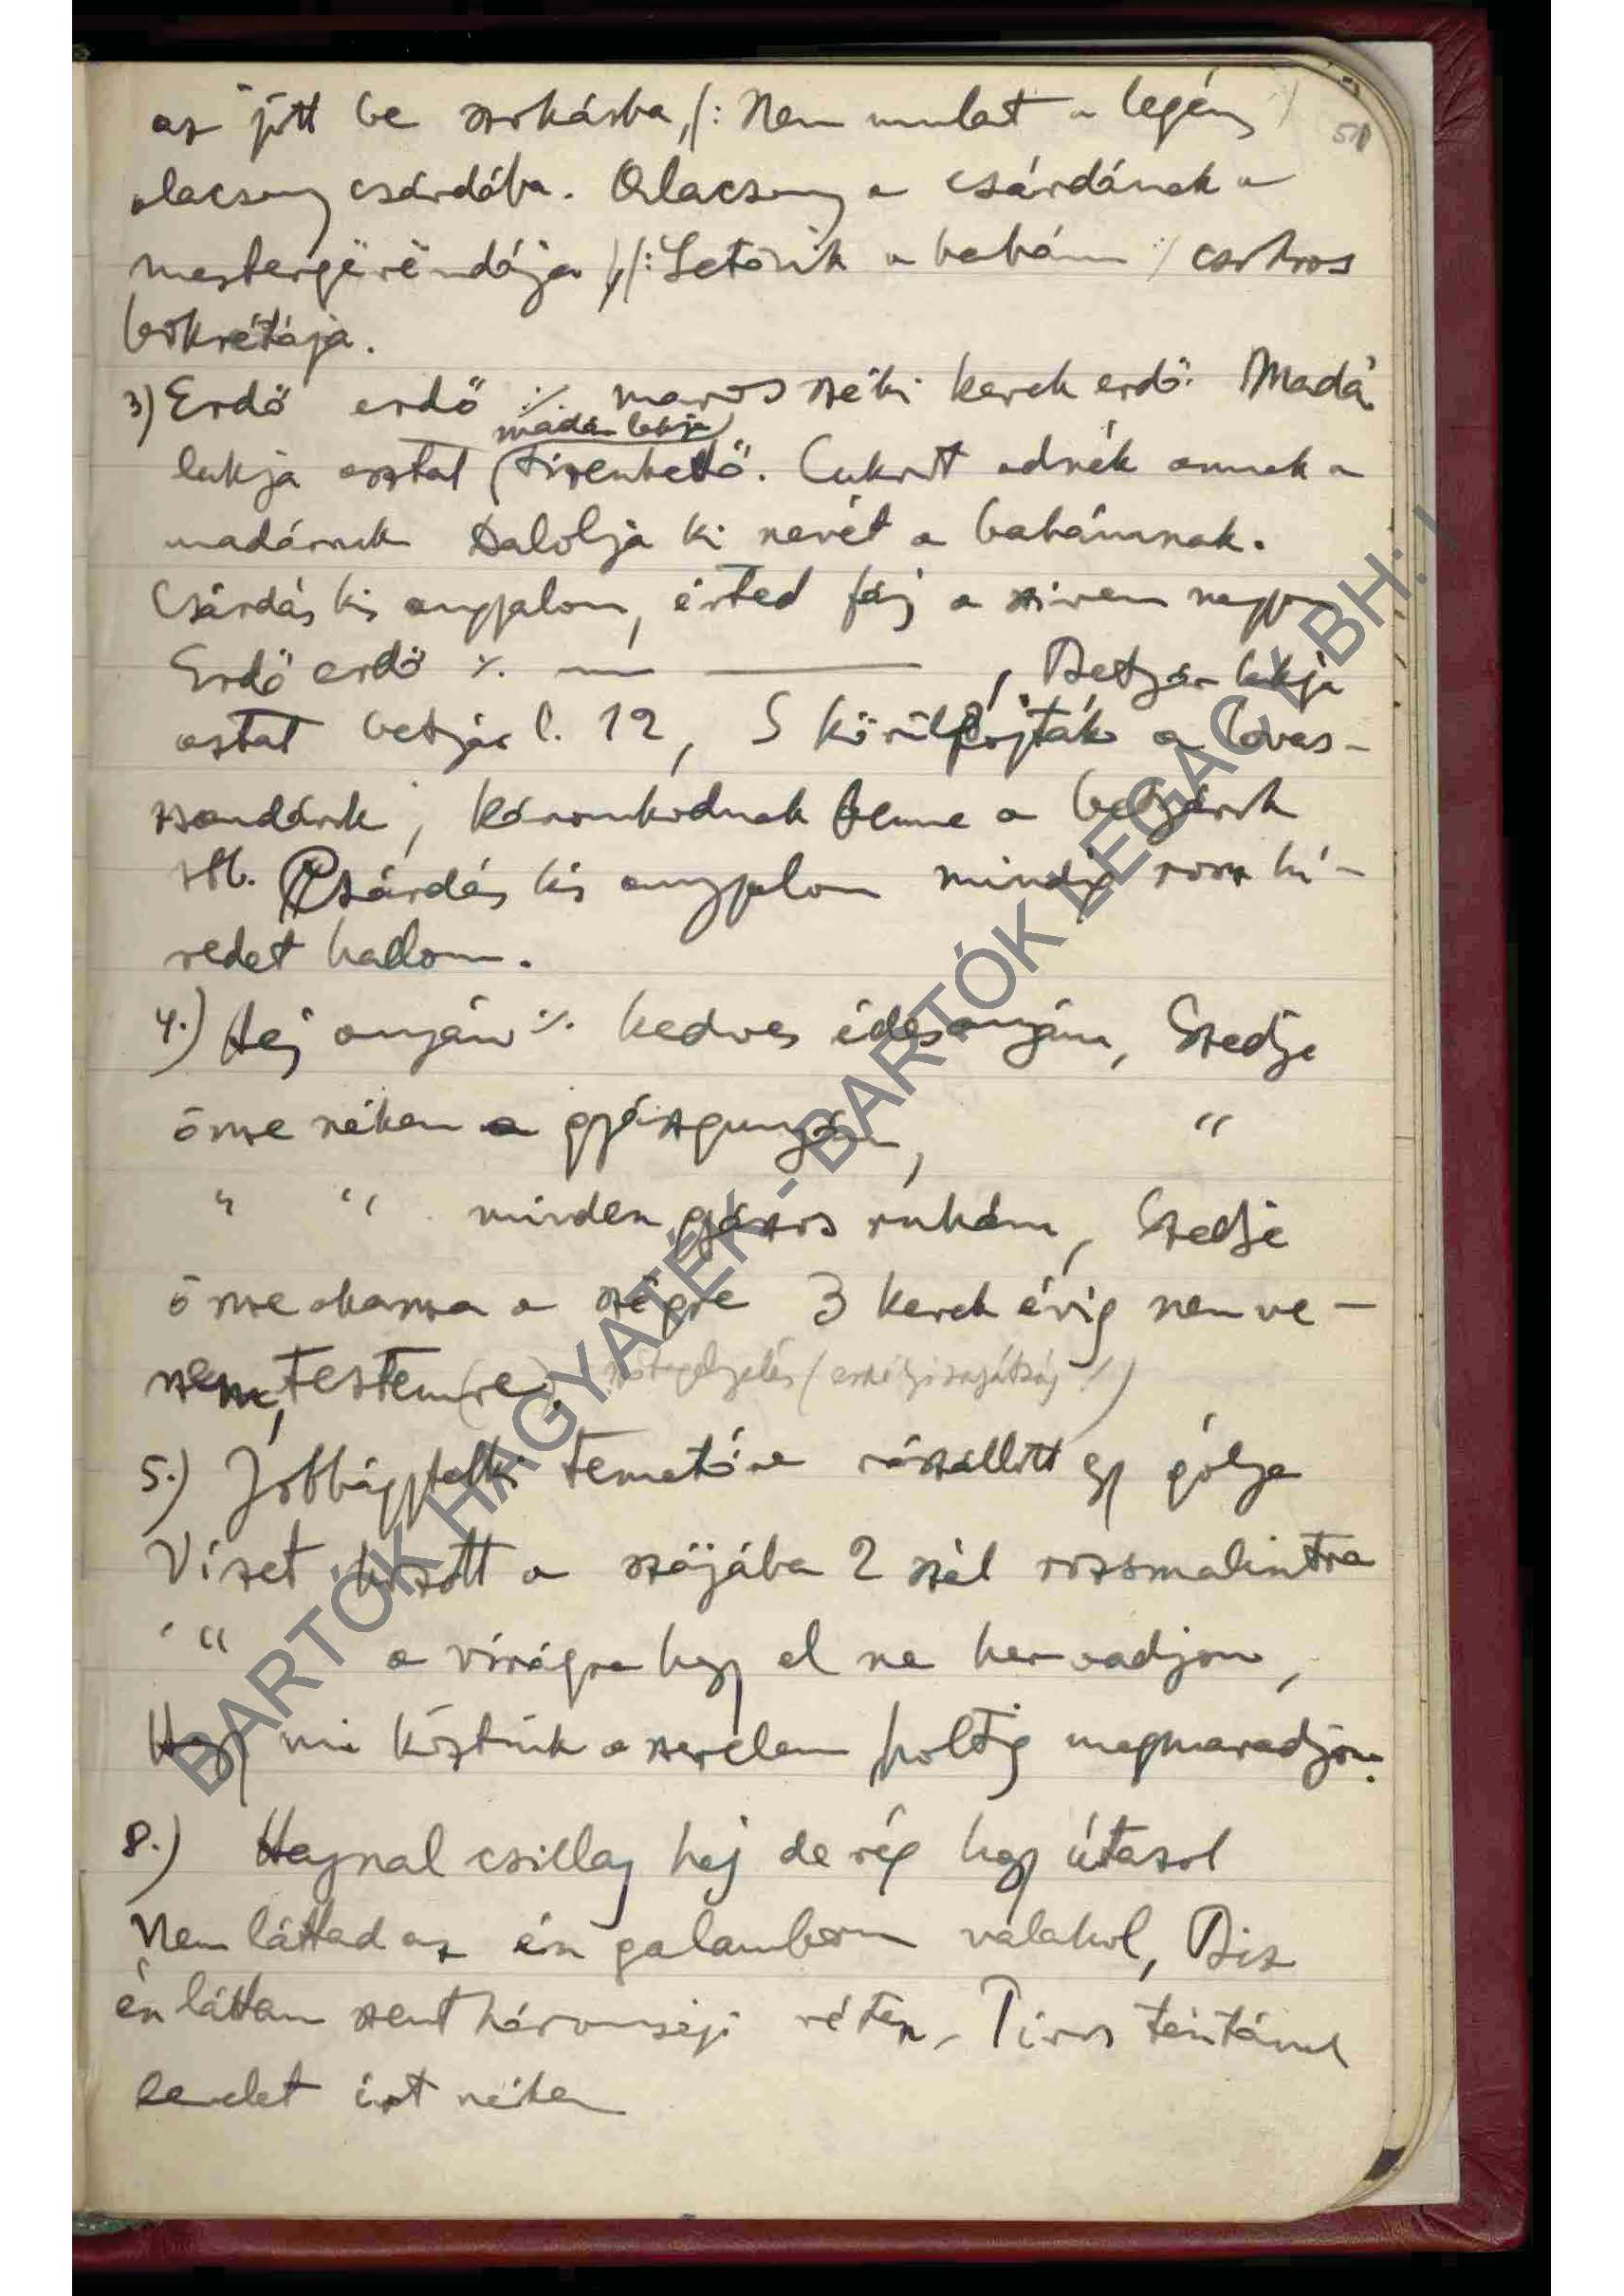 az jött be szokásba, /: Nem mulat a legény :/
51
alacsony csárdába. Alacsony a csárdának a
mestergërëndája, /: Letörik a babám :/ csokros
bokrétája.
3) Erdő erdő ·/. marosszéki kerek erdő. Madá
mada lakja
lakja asztat tizenkettő. Cukrot adnék annak a
madárnak Dalolja ki nevét a babámnak.
Csárdás kis angyalom, érted fáj a szivem nagyon
Erdő erdő ·/. — ——— , Betyár lakja
asztat betyár l. 12, S körülfojták a lovas-
zsandárok, káromkodnak benne a betyárok
stb. Csárdás kis angyalom mindig rossz hí-
redet hallom.
4.) Hej anyám ·/. kedves édesanyám, Szedje
össze nékem a gyászgunyám, "
" " minden gyászos ruhám, Szedje
össze akassza a szëgre 3 kerek évig nem ve-
szem testem(re).
5.) Jobbágytelki temetőre rászállott egy gólya
Vizet hozott a szájába 2 szál rozsmalintra
" " a virágra hogy el ne hervadjon,
Hogy mi köztünk a szerelem holtig megmaradjon.
8.) Hajnal csillag hej de rég hogy útazol
Nem láttad az én galambom valahol, Bisz
én láttam szentháromsági réten, Piros téntával
levelet írt nékem
BARTÓK HAGYATÉK - BARTÓK LEGACY BH: I